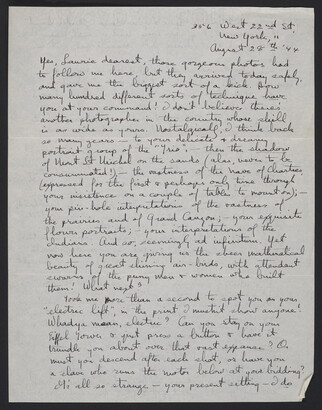 West 22nd St.
New York, 11
August 28th '44
Yes, Laurie dearest, those gorgeous photos had
to follow me here, but they arrived today safely,
and gave me the biggest sort of a kick. How
many hundred different sorts of technique have
you at your command! I don't believe there's
another photographer in the country whose skill
is as wide as yours. Nostalgically, I think back
so many years — to your delicate, dreamy
portrait group of the "Trio" — then the shadow
of Mont St Michel on the sands (alas, never to be
consummated!) — the vastness of the nave of Chartres
(expressed for the first & perhaps only time through
your insistence on a couple of tables to mount on); —
your pin-hole interpretation of the vastness of
the prairies and of Grand Canyon; — your exquisite
flower portraits; your interpretations of the
Indians. And so, seemingly ad infinitum. Yet
now here you are giving us the sheer mathematical
beauty of great shining air-birds, with attendant
swarms of the puny men & women who built
them! What next?
Took me more than a second to spot you on your
"electric lift", in the print I mustn't show anyone.
Whadye mean, electric? Can you stay on your
Eiffel Tower & just press a button & have it
trundle you about over that vast expanse? Or
must you descend after each shot, or have you
a slave who runs the motor below at your bidding?
It's all so strange — your present setting — I do